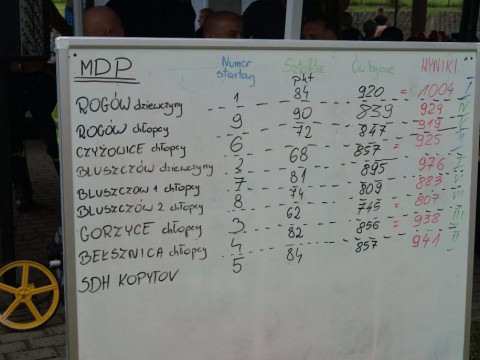 MDP Numer startowy Sztafeta Ćw bojowe WYNIKI
pkt
ROGÓW dziewczyny 1 84 920 = 1004 I
ROGÓW chłopcy 9 90 839 929 IV
CZYŻOWICE chłopcy 6 72 847 = 919 V
BLUSZCZÓW dziewczyny 3 68 857 = 925 II
BLUSZCZÓW 1 chłopcy 7 81 895 976 I
BLUSZCZÓW 2 chłopcy 8 74 809 883 VI
GORZYCE chłopcy 3 62 745 = 807 VII
BEŁSZNICA chłopcy 4 82 856 = 938 III
SDH KOPYTOV 5 84 857 941 II